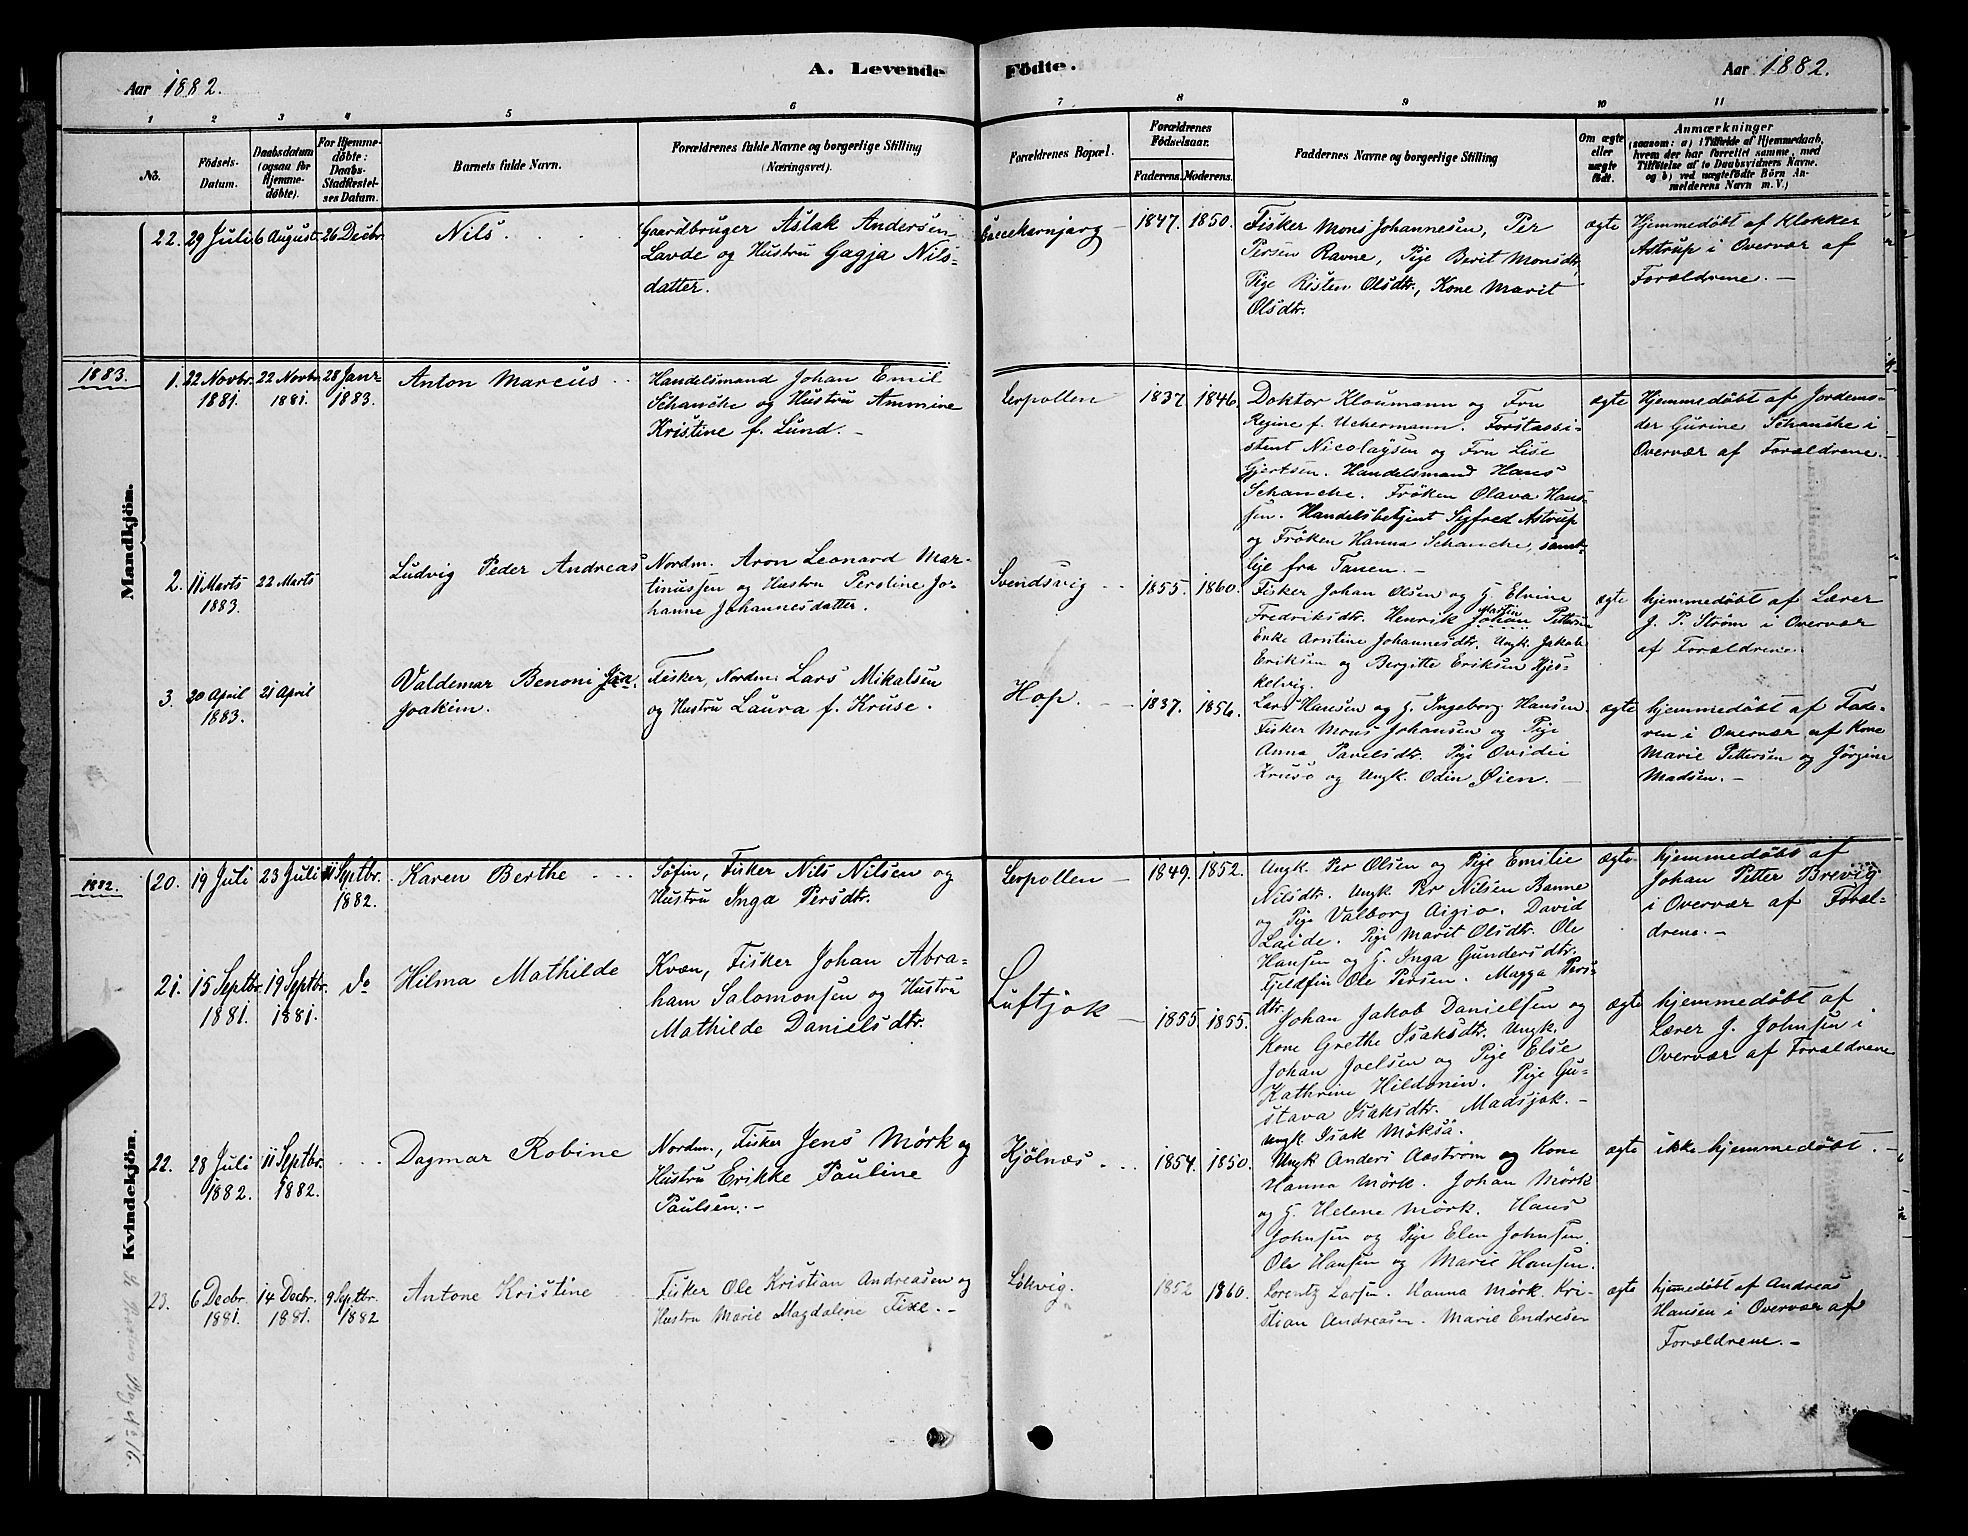 Aar 1882.
A. Levende
Födte.
Aar 1882.
1 2 3 4 5 6 7 8 9 10 11
No.
Födsels-
Datum.
Daabsdatum
(ogsaa for
Hjemme-
döbte).
For Hjemme-
döbte:
Daabs-
Stadfæstel-
ses Datum.
Barnets fulde Navn.
Forældrenes fulde Navne og borgerlige Stilling
(Næringsvei).
Forældrenes Bopæl.
Forældrenes
Födselsaar.
Faderens. Moderens.
Faddernes Navne og borgerlige Stilling
Om ægte
eller
uægte
födt.
Anmærkninger
(saasom: a) i Tilfælde af Hjemmedaab,
hvem der har forrettet samme, med
Tilföielse af to Daabsvidners Navne.
og b) ved uægtefödte Börn An-
melderens Navn m. V.)
Mandkjön.
22. 29 Juli 6 August. 26 Decbr.
Nils
Gaardbruger Aslak Andersen
Lavde og Hustru Gagja Nils-
datter.
1847. 1850.
Fisker Mons Johannesen, Per
Persen Ravne, Pige Berit Monsdtr.
Pige Risten Olsdtr., Kone Marit
Olsdtr.
ægte
Hjemmedöbt af Klokker
Astrup i Overvær af
Forældrene. -
1883.
1. 22 Novbr. 1881. 22 Novbr. 1881. 28 Janr. 1883.
Anton Marcus
Handelsmand Johan Emil
Schanche og Hustru Ammine
Kristine f. Lund. -
Leerpollen
1837. 1846.
Doktor Kloumann og Fru
Regine f. Uchermann. Forstassi-
stent Nicolaysen og Fru Lise
Gjertsen. Handelsmand Hans
Schanche. Fröken Olava Hans-
sen. Handelsbetjent Sigfred Astrup
og Fröken Hanna Schanche, samt-
lige fra Tanen. -
ægte
Hjemmedöbt af Jordemo-
der Gurine Schanche i
Overvær af Forældrene.
2. 11 Marts 1883. 22 Marts
Ludvig Peder Andreas
Nordm. Aron Leonard Mar-
tinussen og Hustru Peroline Jo-
hanne Johannesdatter.
Svendsvig
1855. 1860.
Fisker Johan Olsen og G. Elvine
Fredriksdtr. Henrik Johan Pettersen
Martin
Enke Arntine Johannesdtr. Ungk. Jakob
Eriksen og Bergitte Eriksen Kjes-
kelvig.
ægte
hjemmedöbt af Lærer
J. P. Ström i Overvær
af Forældrene
3. 20 April 1883. 21 April
Valdemar Benoni
Joakim.
Fisker, Nordm. Lars Mikalsen
og Hustru Laura f. Kruse.
Hop.
1837. 1856.
Lars Hansen og G. Ingeborg Hansen.
Fisker Mons Johansen og Pige
Anna Pavelsdtr. Pige Ovidei
Kruse og Ungk. Odin Öien. -
ægte
hjemmedöbt af Fade-
ren i Overvær af Kone
Marie Pettersen og Jörgine
Madsen. -
Kvindekjön.
1882.
20. 19 Juli 23 Juli 11 Septbr. 1882.
Karen Berthe
Söfin, Fisker Nils Nilsen og
Hustru Inga Persdtr.
Leerpollen
1849. 1852.
Ungk. Per Olsen og Pige Emilie
Nilsdtr. Ungk. Per Nilsen Banne
og Pige Valborg Aigio. David
Laide. Pige Marit Olsdtr. Ole
Hansen og G. Inga Gundersdtr.
Fjeldfin Ole Persen. Magga Pers-
dtr.
ægte
hjemmedöbt af
Johan Petter Brevig
i Overvær af Foræl-
drene. -
21. 15 Septbr. 1881. 19 Septbr. 1881. do
Hilma Mathilde
Kvæn, Fisker Johan Abra-
ham Salomonsen og Hustru
Mathilde Danielsdtr.
Luftjok
1855. 1855.
Johan Jakob Danielsen og
Kone Grethe Isaksdtr. Ungk.
Johan Joelsen og Pige Else
Kathrine Hildonin. Pige Gu-
stava Isaksdtr. Madsjok. -
Ungk Isak Möksä.
ægte
hjemmedöbt af
Lærer J. Johnsen i
Overvær af Forældrene
22. 28 Juli 1882. 11 Septbr. 1882.
Dagmar Robine
Nordm., Fisker Jens Mörk og
Hustru Erikke Pauline
Paulsen. -
Kjölnæs
1854. 1850.
Ungk Anders Aaström og Kone
Hanna Mörk. Johan Mörk
og G. Helene Mörk. Hans
Johnsen og Pige Elen Johnsen.
Ole Hansen og Marie Hansen.
ægte
ikke hjemmedöbt. -
23. 6 Decbr. 1881. 14 Decbr. 1881. 9 Septbr. 1882
Antone Kristine
Fisker Ole Kristian Andreasen og
Hustru Marie Magdalene Fixe. -
Lökvig.
1852 1860.
Lorentz Larsen. Hanna Mörk. Kri-
stian Andreasen. Marie Endresen
ægte
hjemmedöbt af Andreas
Hansen i Overvær af
Forældrene. -